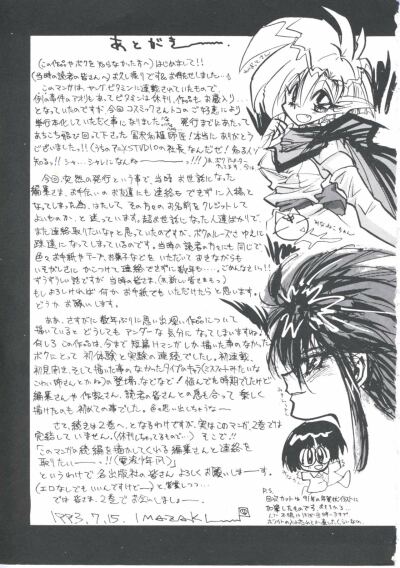 あとがき———.
(この作品やボクを知らなかった方へ) はじめまして!!
(当時の読者の皆さんへ) お久し振りです&お待たせしました…。
このマンガは、ヤングビタミンに連載されていたもので
例の事件のアオリもあってビタミンは休刊,作品もお蔵入り…
となっていたのですが 今回 コスミックさんトコのご好意により
単行本化していただく事になりました
発行までにあたって
あちこち飛び回って下さった
本当にありがとう
ございました!!
今回,突然の発行という事で,当時お世話になった
編集さま,お手伝いのお友達にも連絡もできずに入稿と
なってしまった為,はたして,その方々のお名前をクレジットして
よいものか…と迷っています。超お世話になった人達ばかりで,
また連絡取りたいなァと思っていたのですが,ボクのルーズさゆえに
疎遠になってしまっているのです。当時の読者の方々にも同じで
色々お手紙やテープ,お菓子などをいただいておきながらも
いそがしさにかこつけて連絡できずに数年…。ごめんなさいっ!!
ずうずうしい話ですが 当時の皆さま,(新しい皆さまも)
もしよろしければ何かお手紙でもいただけたらと思います。
どうかお願いします。
ああ,さすがに数年ぶりに思い出深い作品について
描いていると どうしてもヤングーな気分になってしまいますね。
何しろこの作品は,今まで短篇Hマンガしか描いた事のなかった
ボクにとって 初体験と実験の連続でしたし。初連載,
初見開き,そして描いた事のなかったタイプのキャラ
の登場,などなど! 悩んだ時期でしたけど
編集さんや作家さん,読者の皆さんとの息も合って 楽しく
描けたのも 初めての事でした。色々思い出しちゃうなー
さて,続きは2巻へ,となるわけですが,実はこのマンガ,2巻では
完結していません。(休刊しちゃってるもので…) そこで!!
「このマンガの続編を描かしてくれる編集さんと連絡を
取りたいーっ!!(電波少年风)」
というわけで 各出版社の皆さん よろしくお願いしまーす。
(エロなしでもいいんですけどー)と営業しつつ…
では皆さま,2巻でお会いしましょー。
1993.7.15. IMAZAKI
P.S.